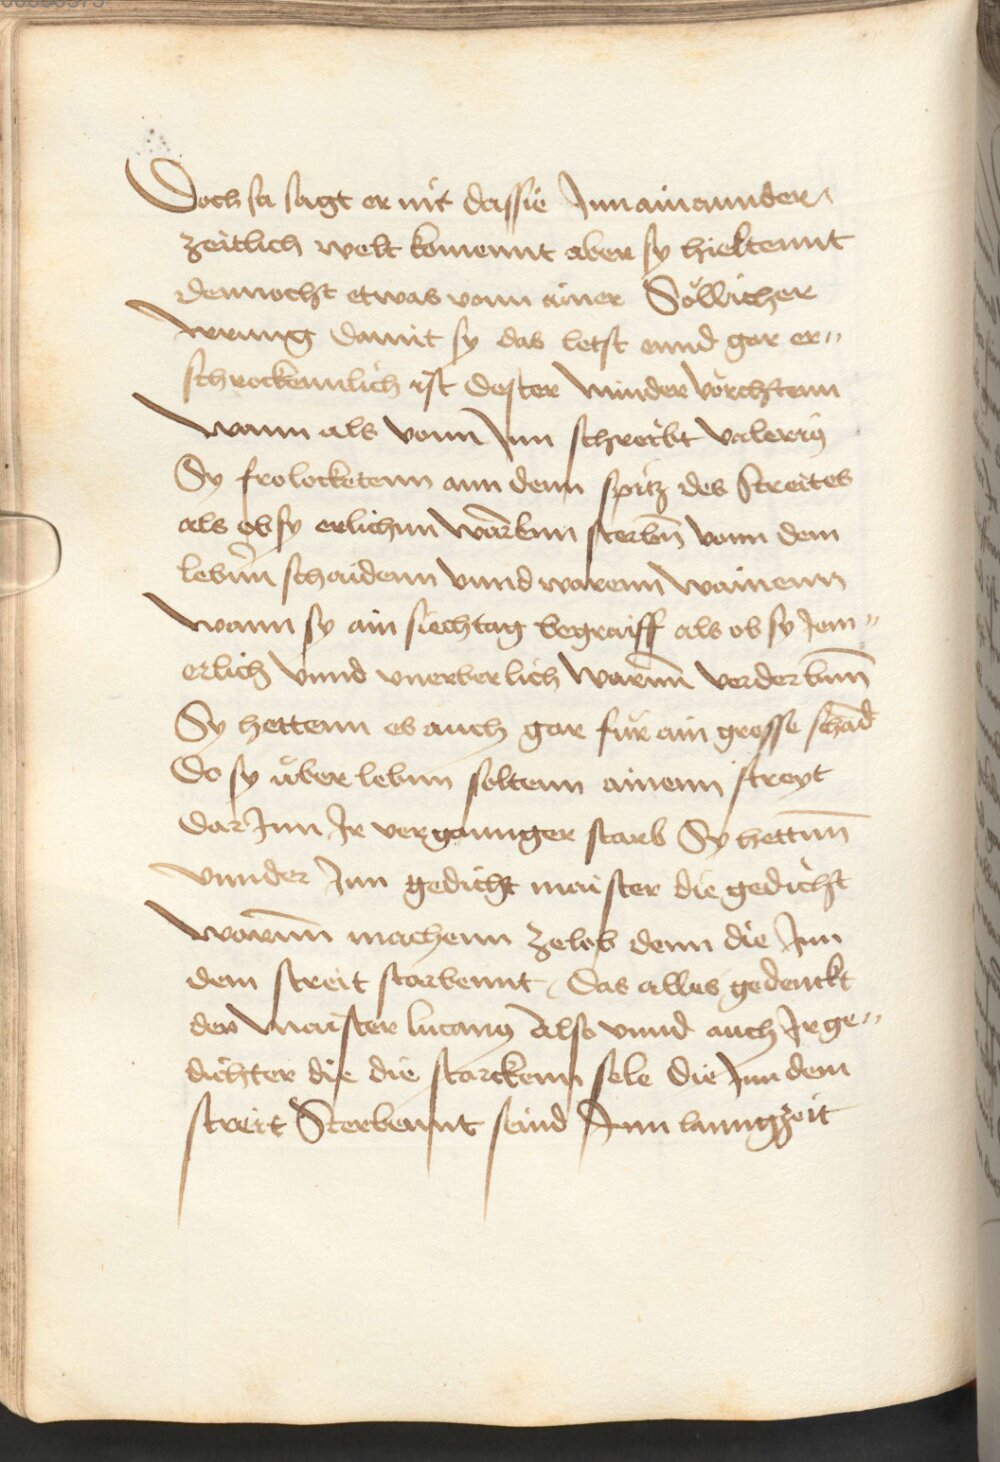 Doch so sagt er nit dassie Inn ain annder
zeitlich welt komennt aber sy hieltennt
dennocht etwas vonn ainer Söllicher
wrung damit sy das letst ennd gar er〃
schrockennlich ist dester minder vörchtenn
wann als vonn Inn schreibt valerius
Sy frolocketenn ann denn spitz des streites
als ob sy erlichnn warknn sterbn̄ vonn dem
lebn̄n schaidenn vnnd warenn wainenn
wann sy ain siechtag begraiff als ob sy Jem〃
erlich vnnd vnerberlich warnn̄ verderbnn̄
Sy hettenn es auch gar für ain grosse schād
Do sy über lebnn soltenn ainenn streyt
dar Inn Ir vergannger starb Sy hettnn̄
vnnder Inn gedicht maister die gedicht
warnn̄ machenn ze lob denn die Inn
dem streit starbennt, Das alles gedenckt
der Maister lucanus Also vnnd auch Ir ge〃
dichter die die starckenn sele die Inn dem
streit Sterbennt seind Inn lanngzeit